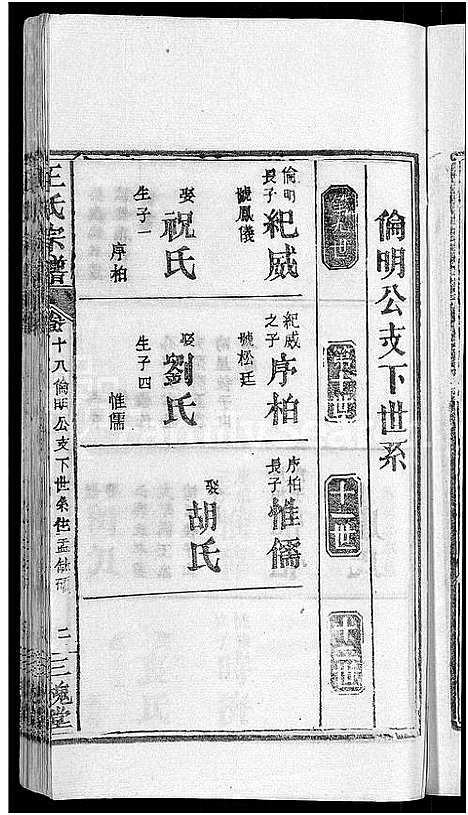 倫明公支下世系
第九世
第十世
十一世
十二世
倫明長子
紀威
號鳳儀
娶祝氏
生子一
序柏
紀威之子
序柏
號松廷
娶劉氏
生子四
惟儒
序柏長子
惟儒
娶胡氏
王氏宗譜
卷十八倫明公支下世系
二
三槐堂